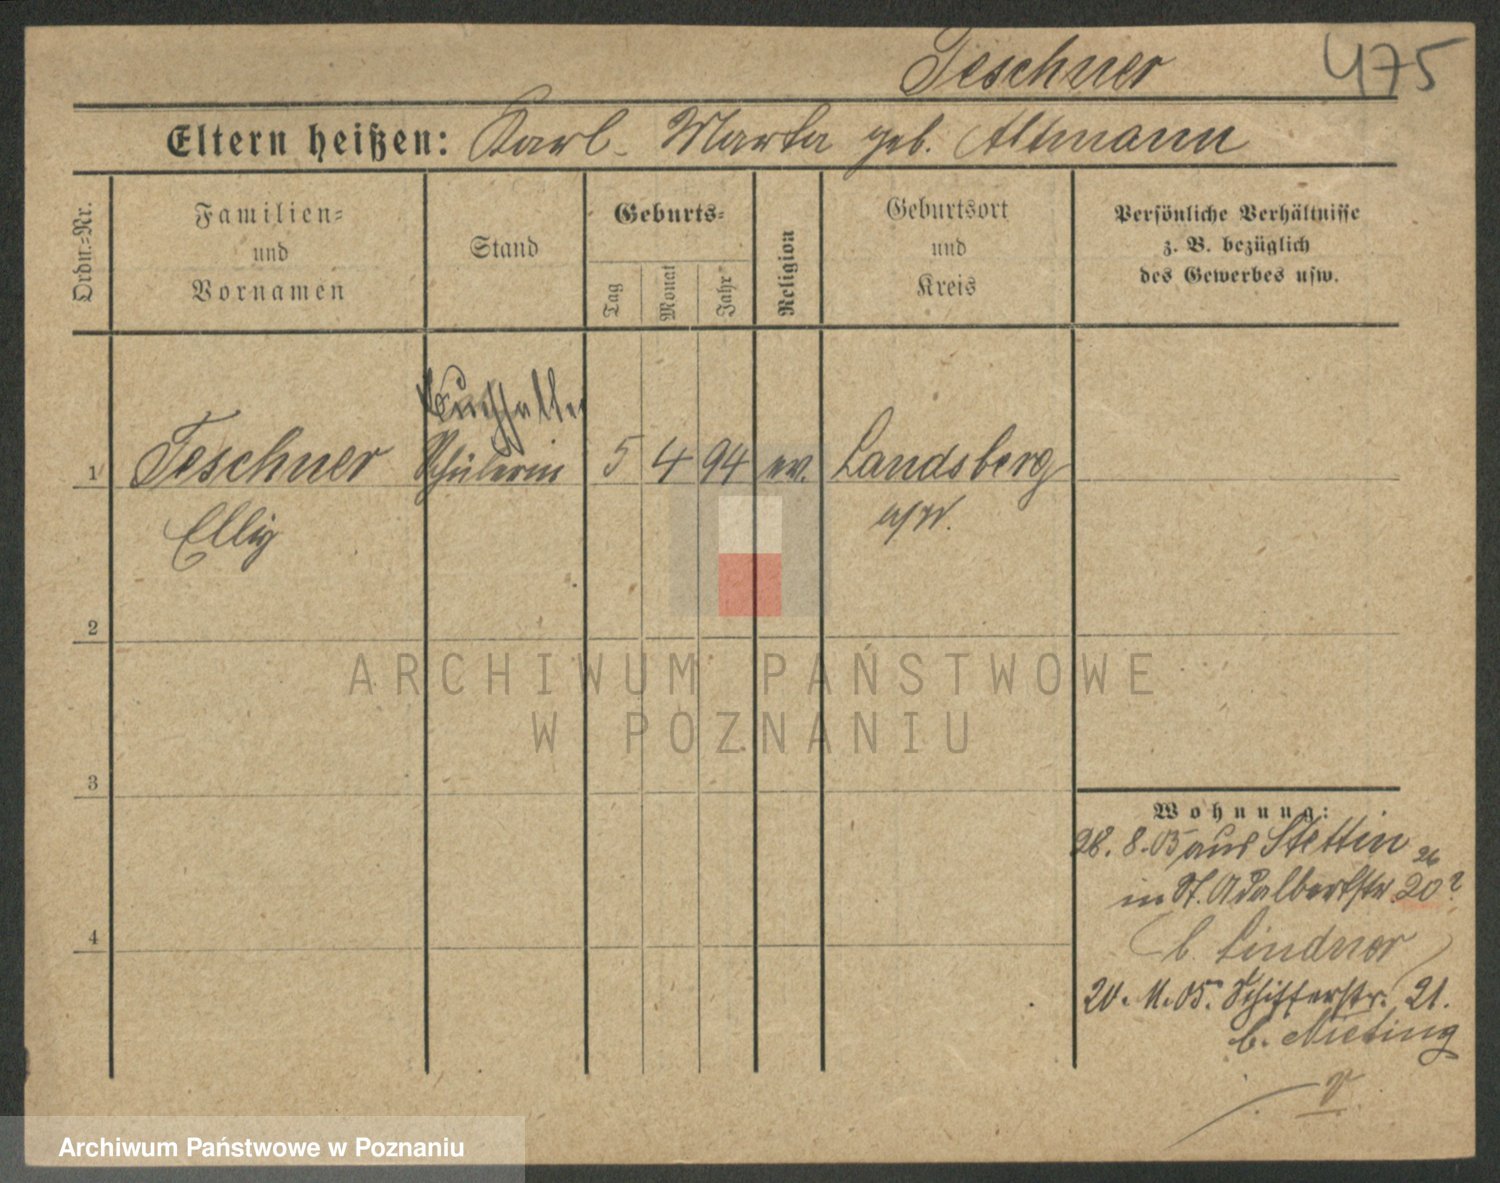 Teschner 475
Eltern heißen: Karl - Marta geb. Altmann
Ordn.=Nr.
Familien=
und
Vornamen
Stand
Geburts=
Tag
Monat
Jahr
Religion
Geburtsort
und
Kreis
Persönliche Verhältnisse
z. B. bezüglich
des Gewerbes usw.
Buchhalter
1 Teschner Schülerin 5 4 94 ev. Landsberg
a/W.
2
3
4
ARCHIWUM PAŃSTWOWE
W POZNANIU
Wohnung:
28. 8. 05 aus Stettin
26
in St. Adalbertstr. 20?
(b. Lindner)
20. 11. 05. Schifferstr. 21.
b. Nieting
Archiwum Państwowe w Poznaniu